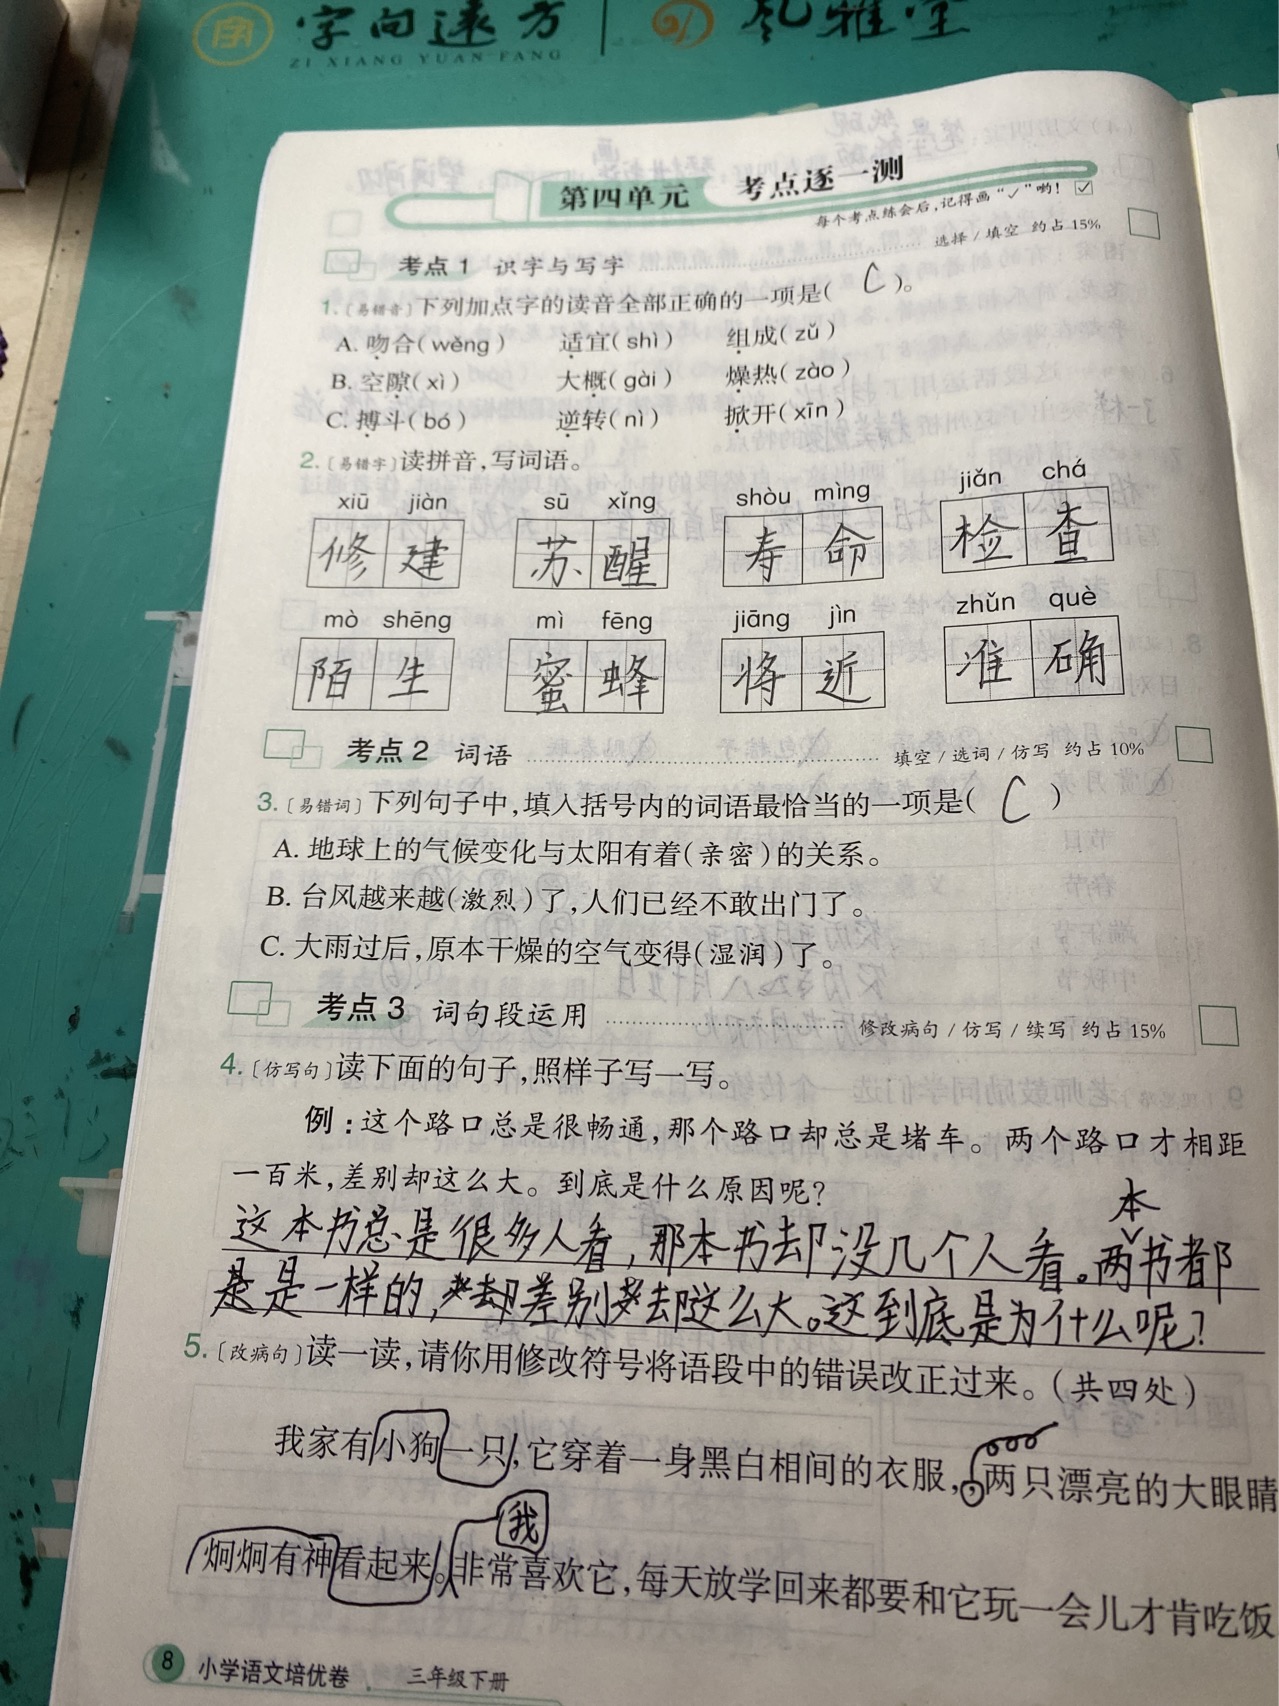 字向远方 风雅堂
ZI XIANG YUAN FANG
第四单元 考点逐一测
每个考点练会后,记得画“✓”哟!
考点1 识字与写字 选择/填空 约占15%
1.〔易错音〕下列加点字的读音全部正确的一项是( C )。
A. 吻合(wěng) 适宜(shì) 组成(zǔ)
B. 空隙(xì) 大概(gài) 燥热(zào)
C. 搏斗(bó) 逆转(nì) 掀开(xīn)
2.〔易错字〕读拼音,写词语。
xiū jiàn sū xǐng shòu mìng jiǎn chá
修建 苏醒 寿命 检查
mò shēng mì fēng jiāng jìn zhǔn què
陌生 蜜蜂 将近 准确
考点2 词语 填空/选词/仿写 约占10%
3.〔易错词〕下列句子中,填入括号内的词语最恰当的一项是( C )
A. 地球上的气候变化与太阳有着(亲密)的关系。
B. 台风越来越(激烈)了,人们已经不敢出门了。
C. 大雨过后,原本干燥的空气变得(湿润)了。
考点3 词句段运用 修改病句/仿写/续写 约占15%
4.〔仿写句〕读下面的句子,照样子写一写。
例:这个路口总是很畅通,那个路口却总是堵车。两个路口才相距
一百米,差别却这么大。到底是什么原因呢?
本
这本书总是很多人看,那本书却没几个人看。两书都
是一样的,差别却这么大。这到底是为什么呢?
5.〔改病句〕读一读,请你用修改符号将语段中的错误改正过来。(共四处)
我家有小狗一只,它穿着一身黑白相间的衣服,两只漂亮的大眼睛
我
炯炯有神看起来。非常喜欢它,每天放学回来都要和它玩一会儿才肯吃饭
8 小学语文培优卷 三年级下册